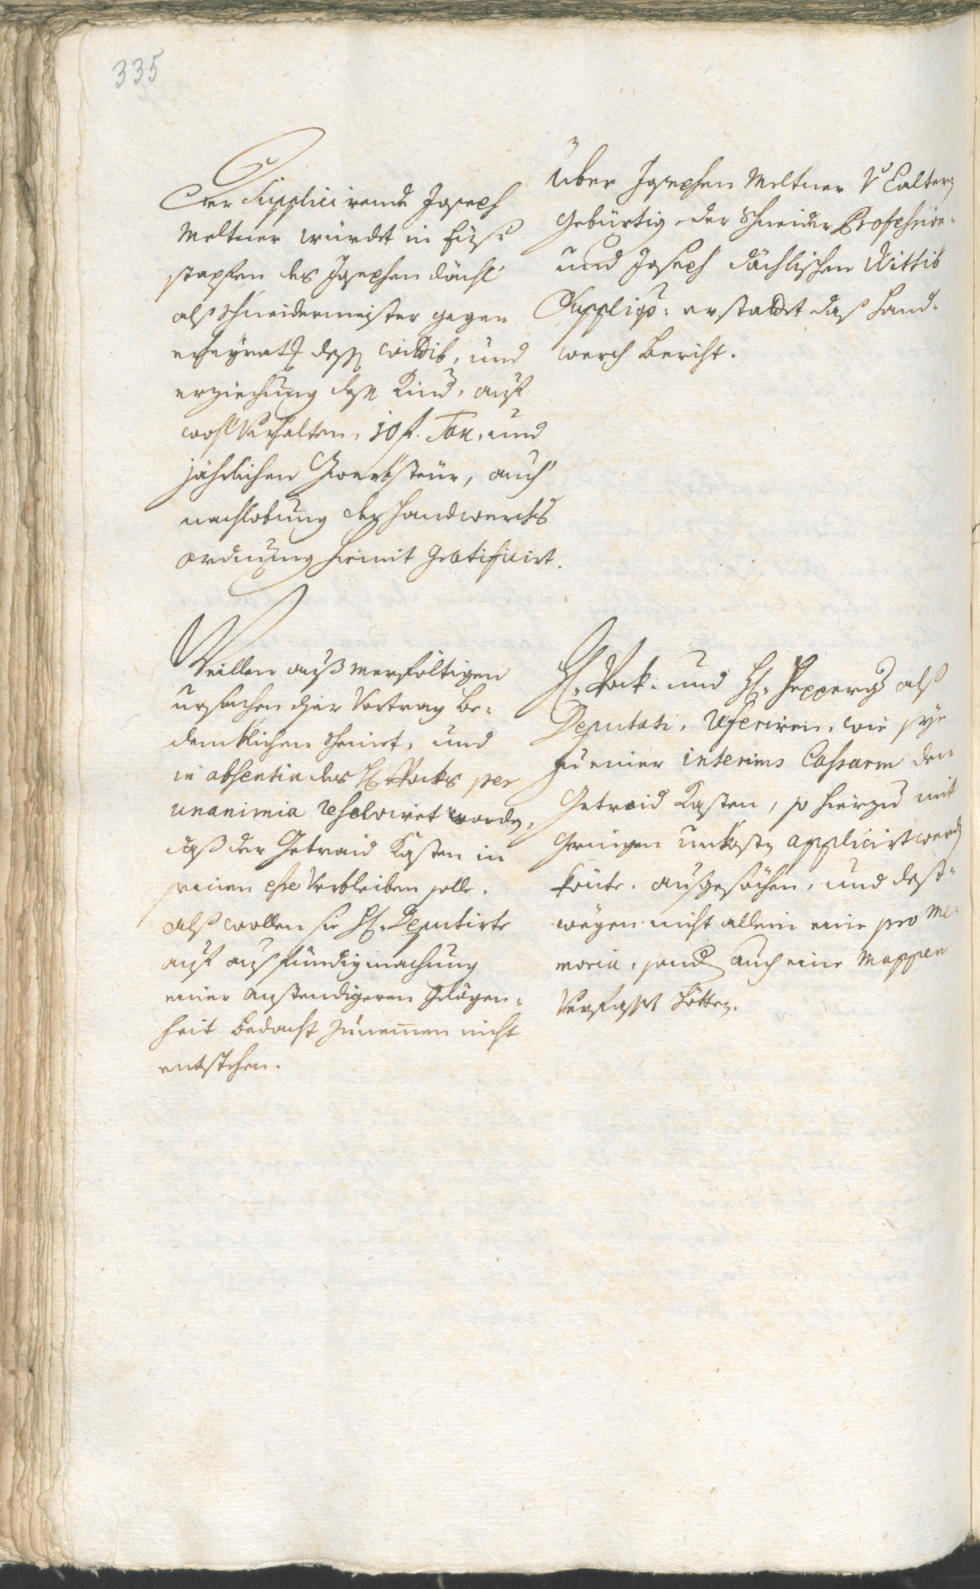 335
Der Supplicirende Joseph
Meltner würdet in Fueß-
stapfen des Josephen Dächl
alß Schneidermeister gegen
erheyrath dessen Wittib, und
erziechung dess Kind, auf
wohl Verhalten, 10 f. Tax, und
jährlichen Gwerbsteür, auch
nachlebung der Handwerchs
ordnung hiemit gratificirt.
Über Josephen Meltner V. Caltern
gebürtig der Schneider Profession
und Joseph Dächlischen Wittib
Suppliq: erstattet das Hand-
werch Bericht.
Weillen auß merfältigen
ursachen der Vortrag be-
dencklichen scheint, und
in absentia des H. Pocks per
unanimia resolviret worden,
daß der Getraid Kasten in
seinen esse Verbleiben solle,
alß wollen die H. Deputirte
auf ausfündigmachung
einer anstendigeren Gelögen-
heit bedacht zunemmen nicht
entstehen.
H. Pock und H. Pepperg als
Deputati, referiren, wie sye
zu einer interims Casarm den
Getraid Kasten, so hierzu mit
geringen unkosten applicirt werden
könte, ausgesächen, und dess-
wegen nicht allein eine pro me-
moria, sondern auch eine Mappen
Verfasst hetten.